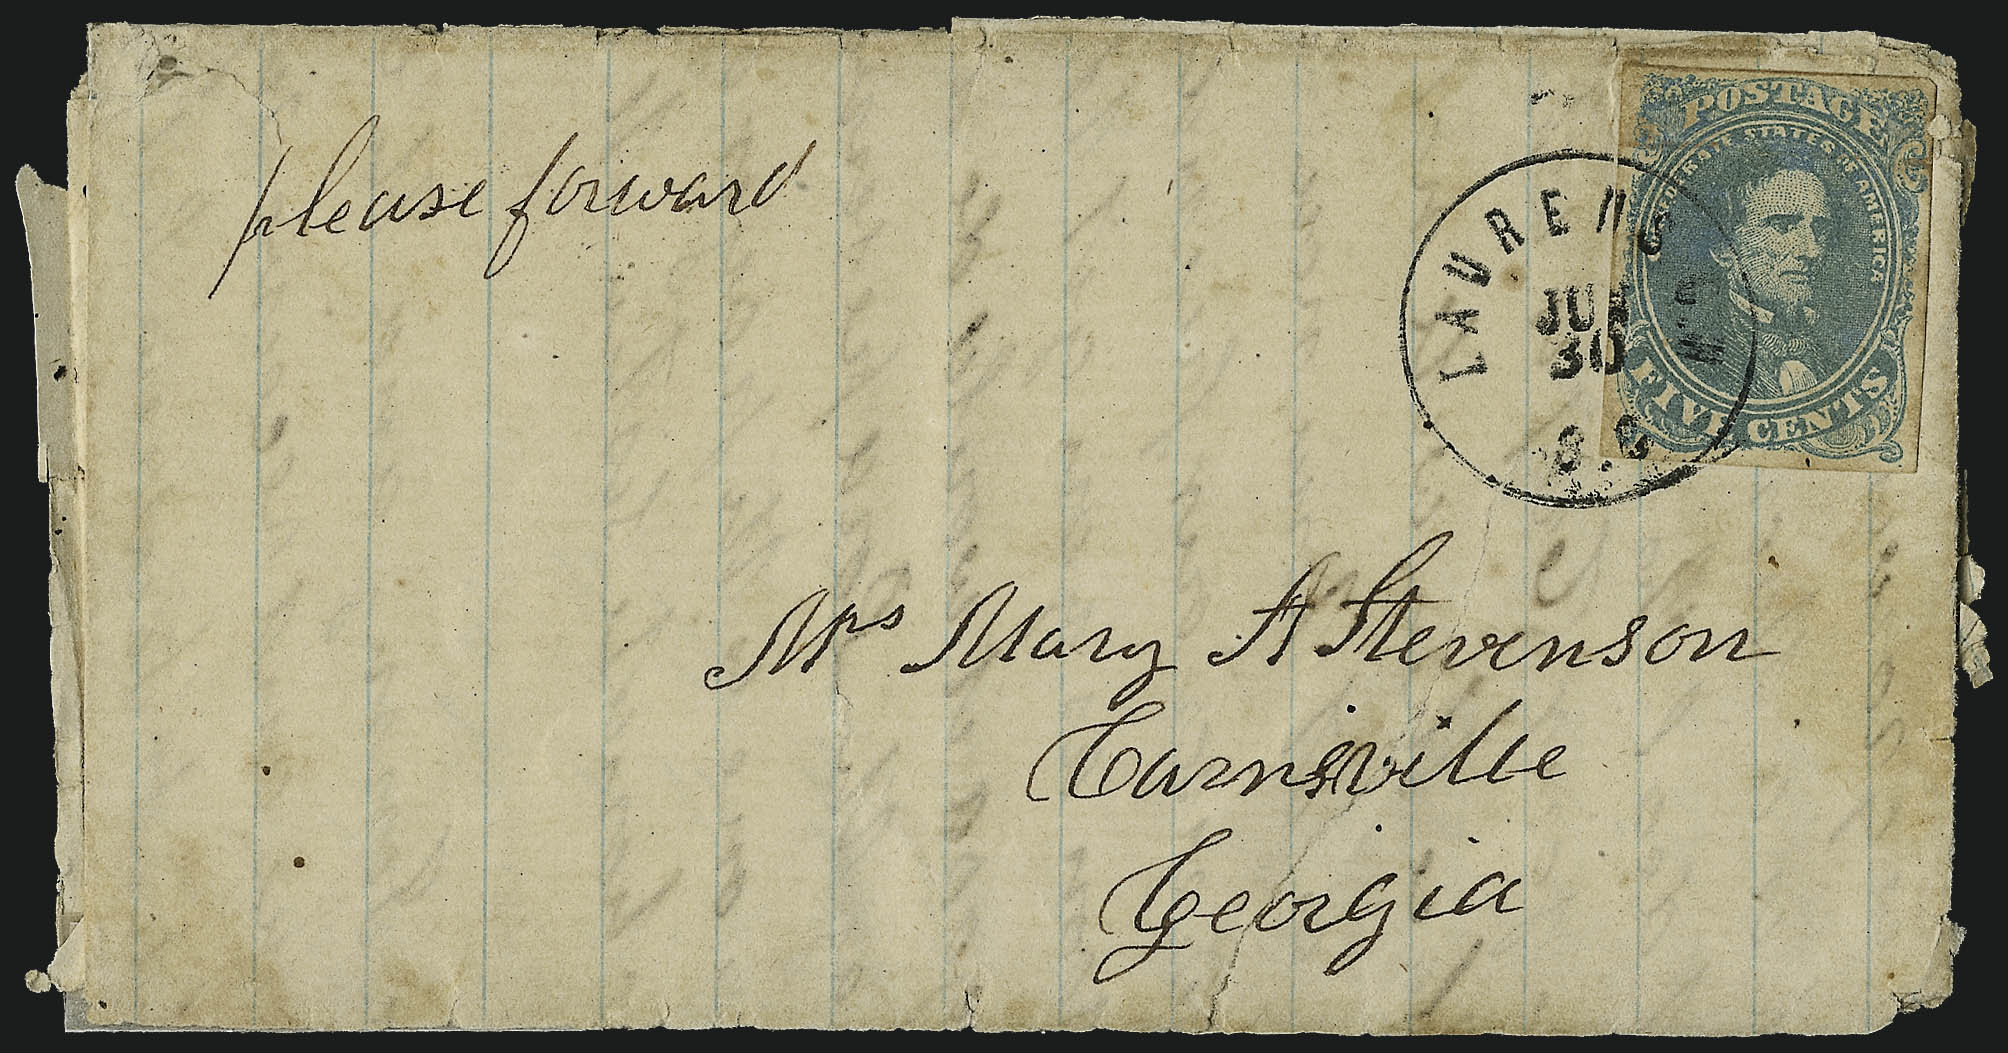 please forward
POSTAGE
CONFEDERATE STATES OF AMERICA
FIVE CENTS
LAURENS C.H.
30
S.C.
Mrs Mary A Stevenson
Carnsville
Georgia